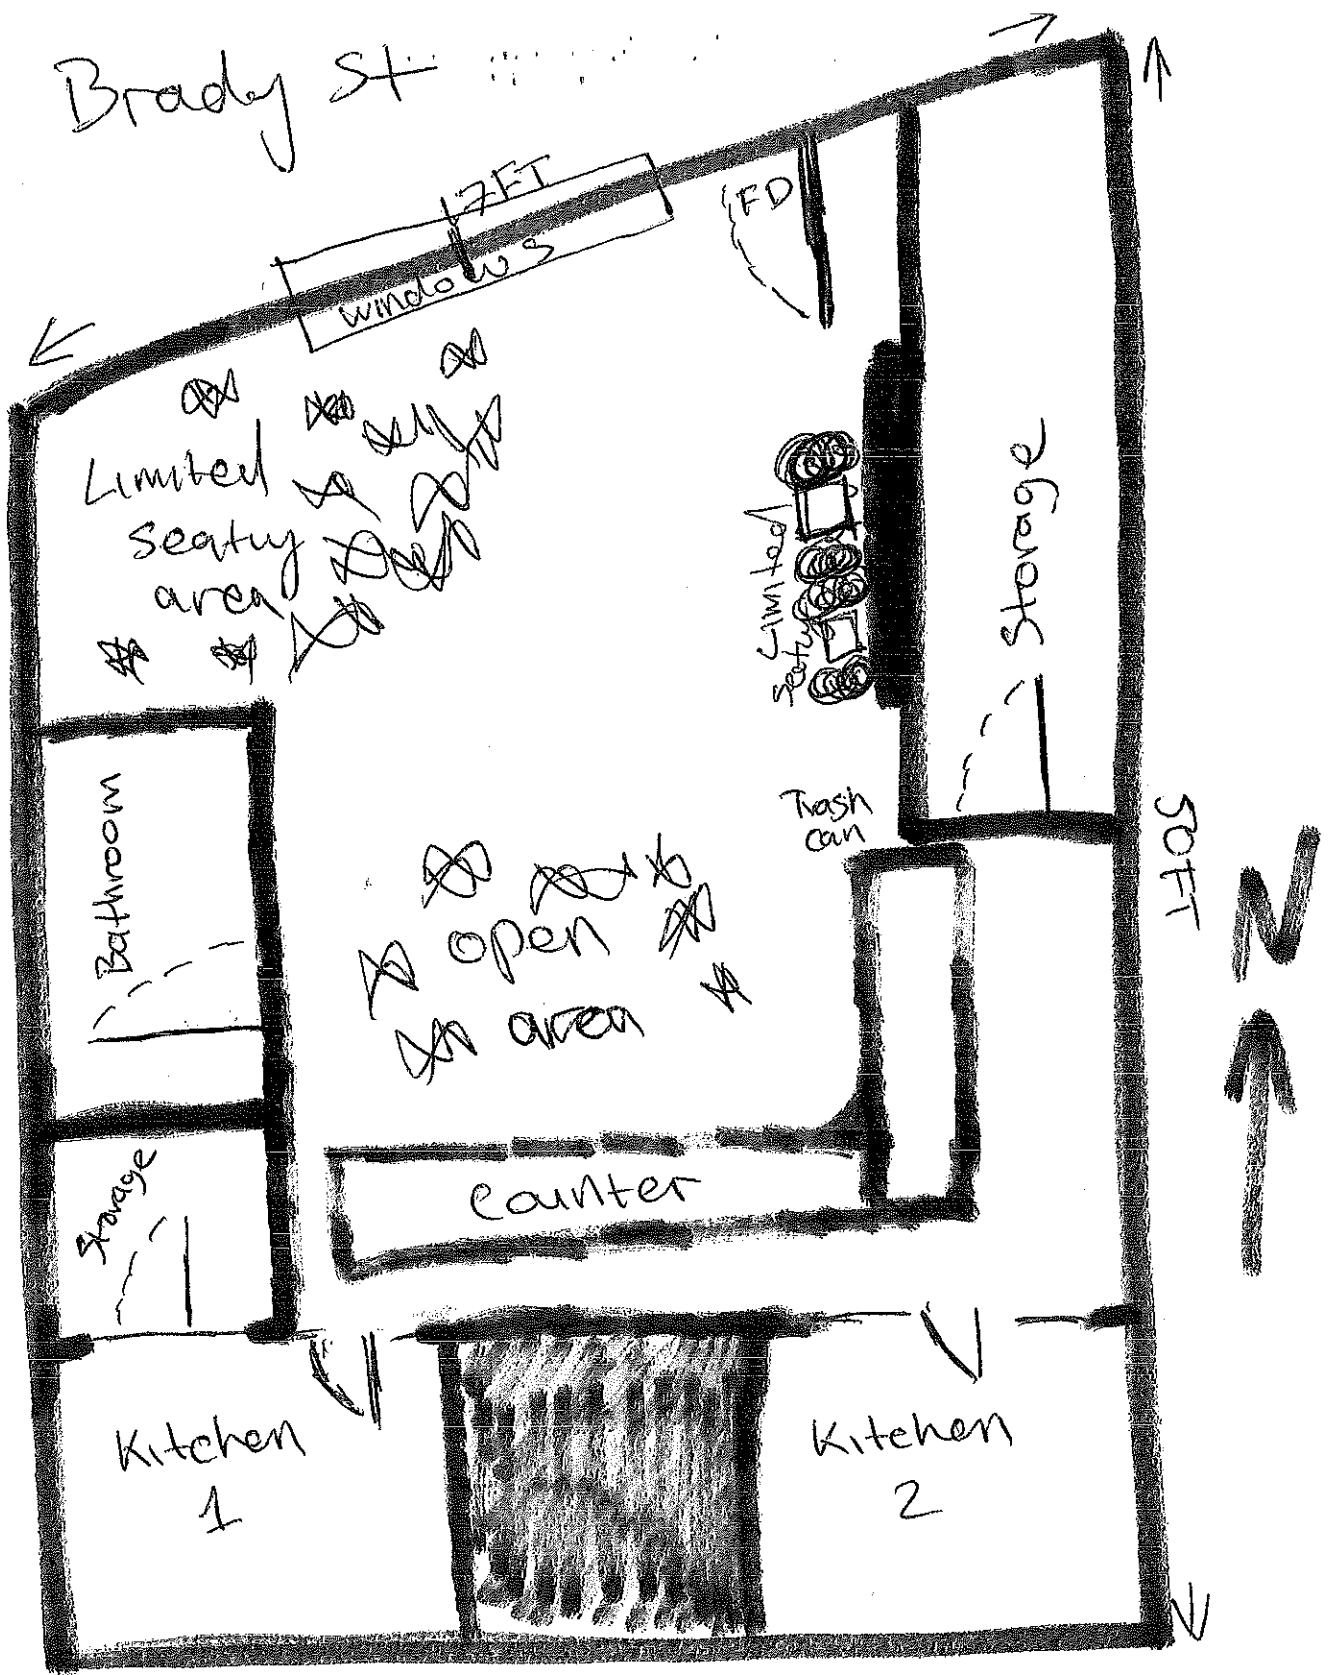 Brady St
17FT
windows
FD
Limited
seating
area
Limited
Seating
Storage
Trash
can
50FT
N
Bathroom
open
area
Storage
Counter
Kitchen
1
Kitchen
2